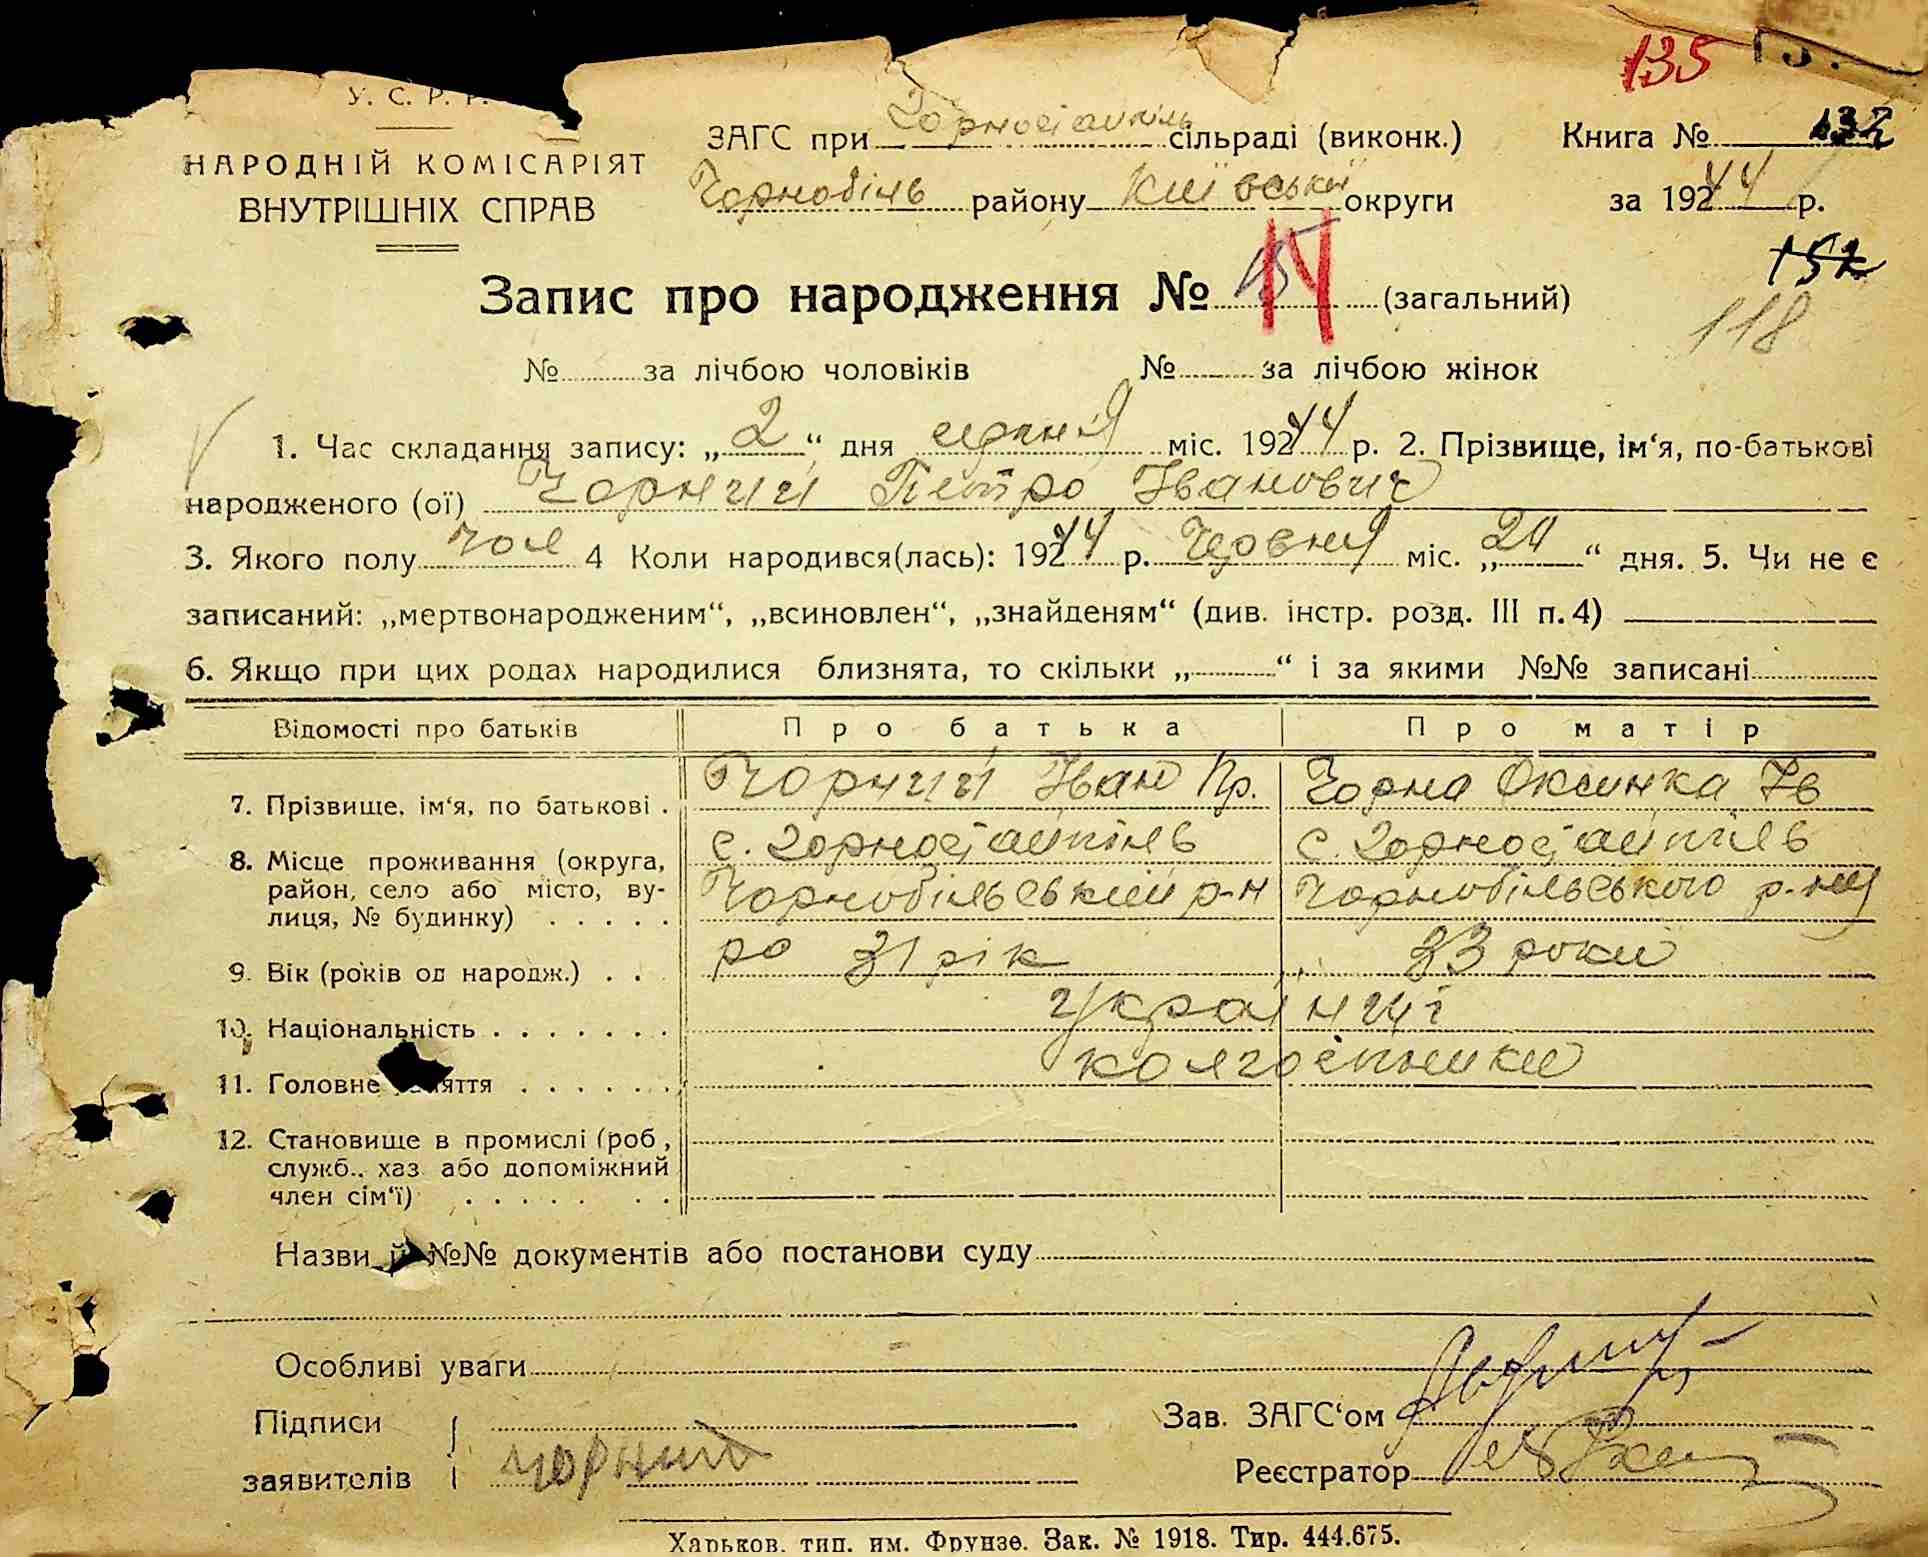 У. С. Р. Р.
НАРОДНІЙ КОМІСАРІЯТ
ВНУТРІШНІХ СПРАВ
135
ЗАГС при Горностайпіль сільраді (виконк.) Книга № 132
Чорнобіль району Київської округи за 1944 р.
Запис про народження № 14 (загальний)
152
118
№ за лічбою чоловіків № за лічбою жінок
1. Час складання запису: „2“ дня серпня міс. 1944 р. 2. Прізвище, ім‘я, по-батькові
народженого (ої) Чорний Петро Іванович
3. Якого полу чол 4 Коли народився(лась): 1944 р. Червня міс. „24“ дня. 5. Чи не є
записаний: „мертвонародженим“, „всиновлен“, „знайденям“ (див. інстр. розд. III п. 4)
6. Якщо при цих родах народилися близнята, то скільки „ “ і за якими №№ записані
Відомості про батьків Про батька Про матір
7. Прізвище, ім‘я, по батькові . Чорний Іван Пр. Чорна Оксинка Ів
8. Місце проживання (округа, район, село або місто, вулиця, № будинку) с. Горностайпіль Чорнобільський р-н с. Горностайпіль Чорнобільського р-ну
9. Вік (років од народж.) . . ро 31 рік 33 роки
10. Національність українці
11. Головне заняття колгоспники
12. Становище в промислі (роб,
служб., хаз або допоміжний
член сім‘ї)
Назви й №№ документів або постанови суду
Особливі уваги
Підписи
заявителів Чорний
Зав. ЗАГС‘ом
Реєстратор
Харьков. тип. им. Фрунзе. Зак. № 1918. Тир. 444.675.